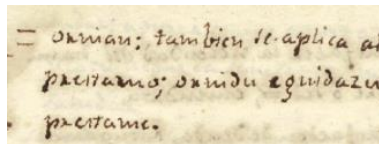 = onnian: tambien se aplica al
prestamo; onnidu eguidazu
prestame.